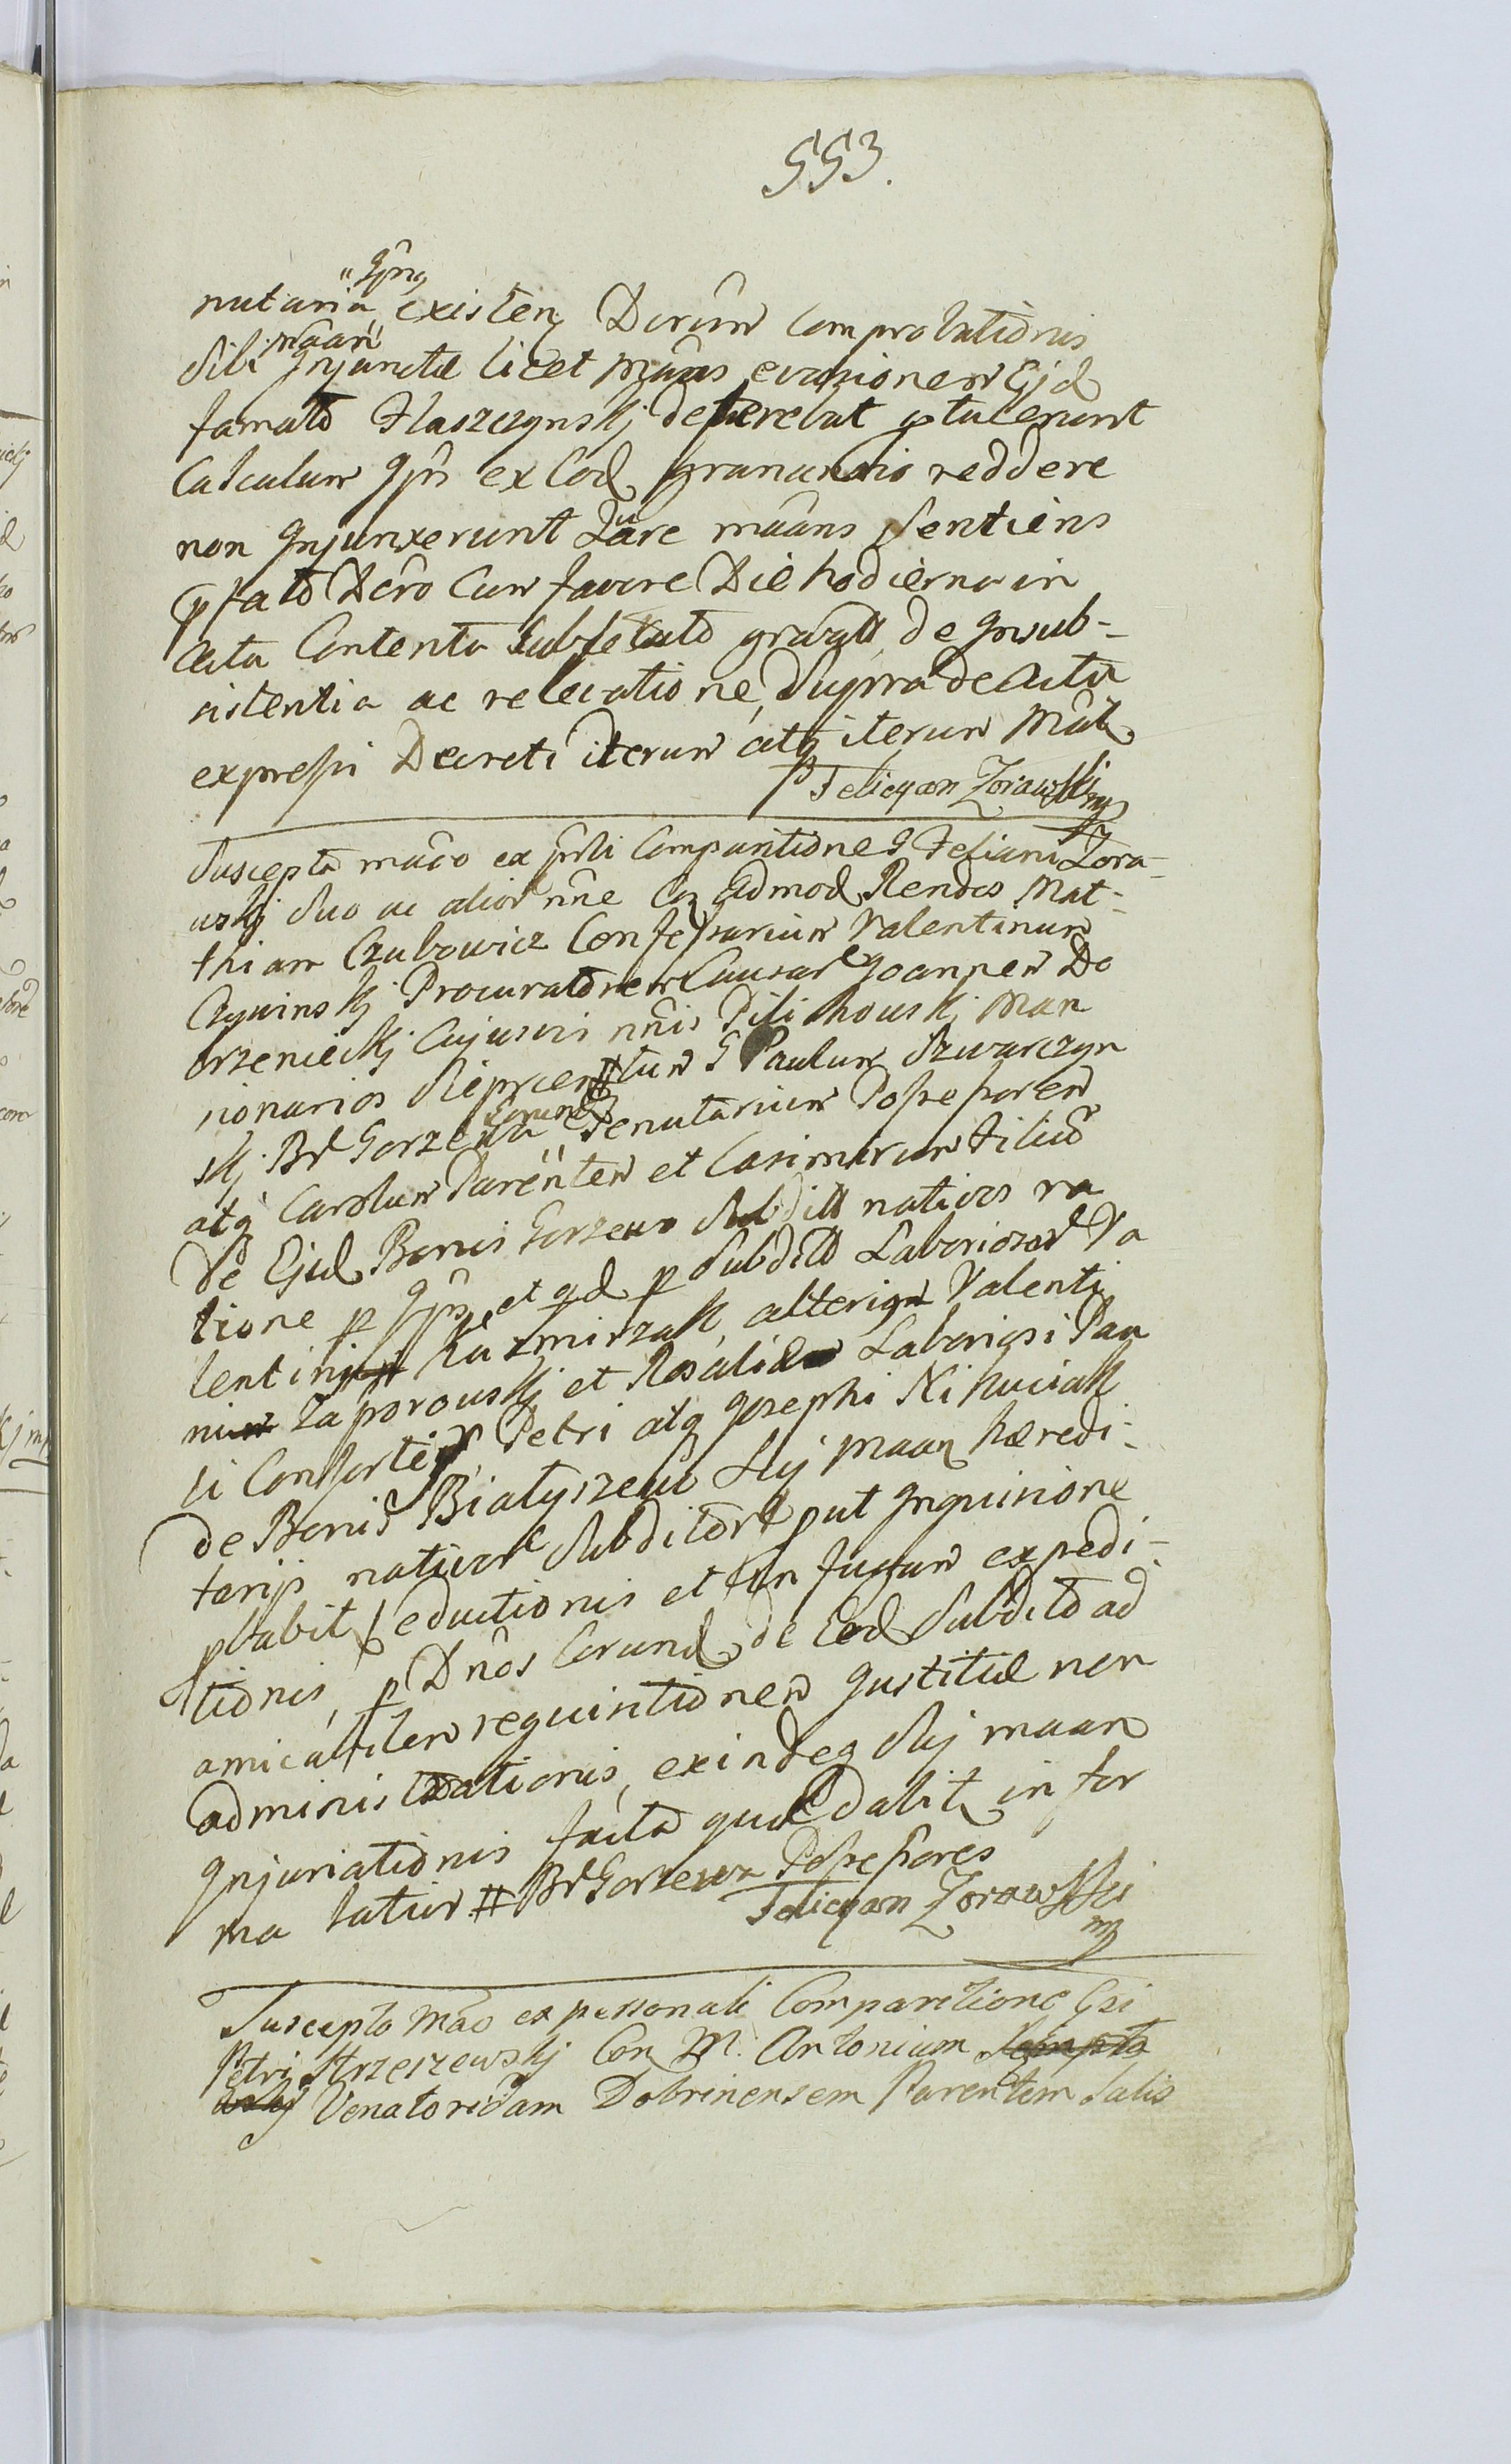 553.
"Ipsu
nutaria existen Dorum Comprobationis
maan"
sibi Injunctæ licet mans evasionem Ejd
famato Flaszczynskj deferebat ptulerunt
Calculum Ipsi ex Cod granario reddere
non Injunxerunt Quare maans Sentiens
pfato Dcro Cum favore Die hodierna in
Acta Contento Subsecuto gravatt, de Insub-
sistentia ac relevatione, Supra de Actu
expressi Decreti iterum atq iterum Mat
Felicyan Zorawski mp
Suscepto mao ex psli Comparitione G Feliciani Zora-
wskj suo ac alior nne Cn Admod Rendos Mat-
thiam Czubowicz Confessarium Valentinum
Czywinskj Procuratorem Causar Joannem Do
brzenieckj Cujusvis nnis Pilichowskj Man
sionarios Skępcen # tum G Paulum Szwarczyn
Earund
skj Br Gorzewa Tenutarium Possessorem
atq Carolum Parentem et Casimirum Filiu
de Ejsd Bonis Gorzewo Subditt nativos ra
tione p Ipsos et qd p Subdito Laboriosor Va
lentini Kazmirzak, alterius Valenti
ni Zaporowskj et Rosaliæ Laboriosi Pau
li Consortis, Petri atq Josephi Nikuciak
de Bonis Białyszewo Suj maan hæredi-
tarijs nativor Subditor put Inquisione
pbabit Seductionis et in fugam expedi-
tionis, p Dnos Earund de Eod Subdito ad
amicabilem requisitionem Justitiæ non
administrationis, exindeq Suj maan
Injuriationis facto quæ dabit in for
ma latius # Br Gorzewa Possessores
Felicyan Zorawski
mp
Suscepto mao ex personali Comparitione Gsi
Petri Strzeszewskj Con M. Antonium
Venatoridam Dobrinensem Parentem Salis